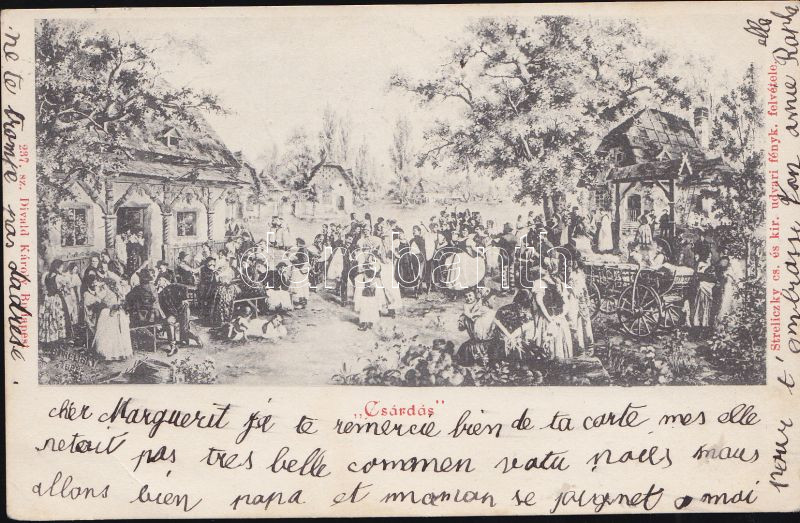 „Csárdás"
cher Marguerit je te remercie bien de ta carte mes elle
netait pas tres belle commen vatu nous nous
allons bien papa et maman se joignet a moi
pour t'embrasse ton amie
elle
ne te trompe pas dadresse.
237. sz. Divald Károly, Budapest
Streliczky cs. és kir. udvari fényk. felvétele.
darabanth